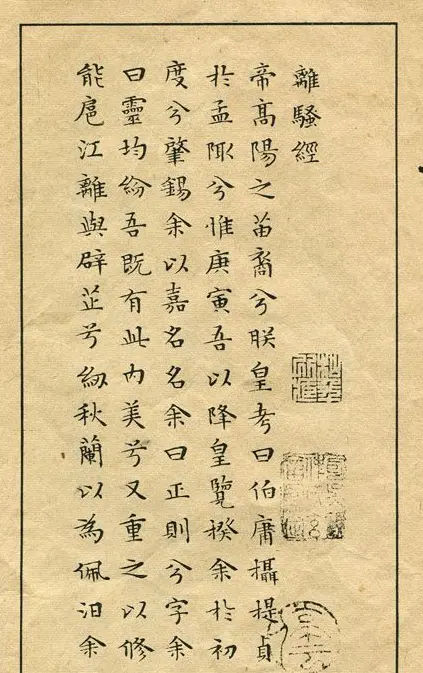 離騷經
帝髙陽之苗裔兮朕皇考曰伯庸攝提貞
於孟陬兮惟庚寅吾以降皇覽揆余於初
度兮肇錫余以嘉名名余曰正則兮字余
曰靈均紛吾既有此内美兮又重之以修
能扈江離與辟芷兮紉秋蘭以為佩汨余